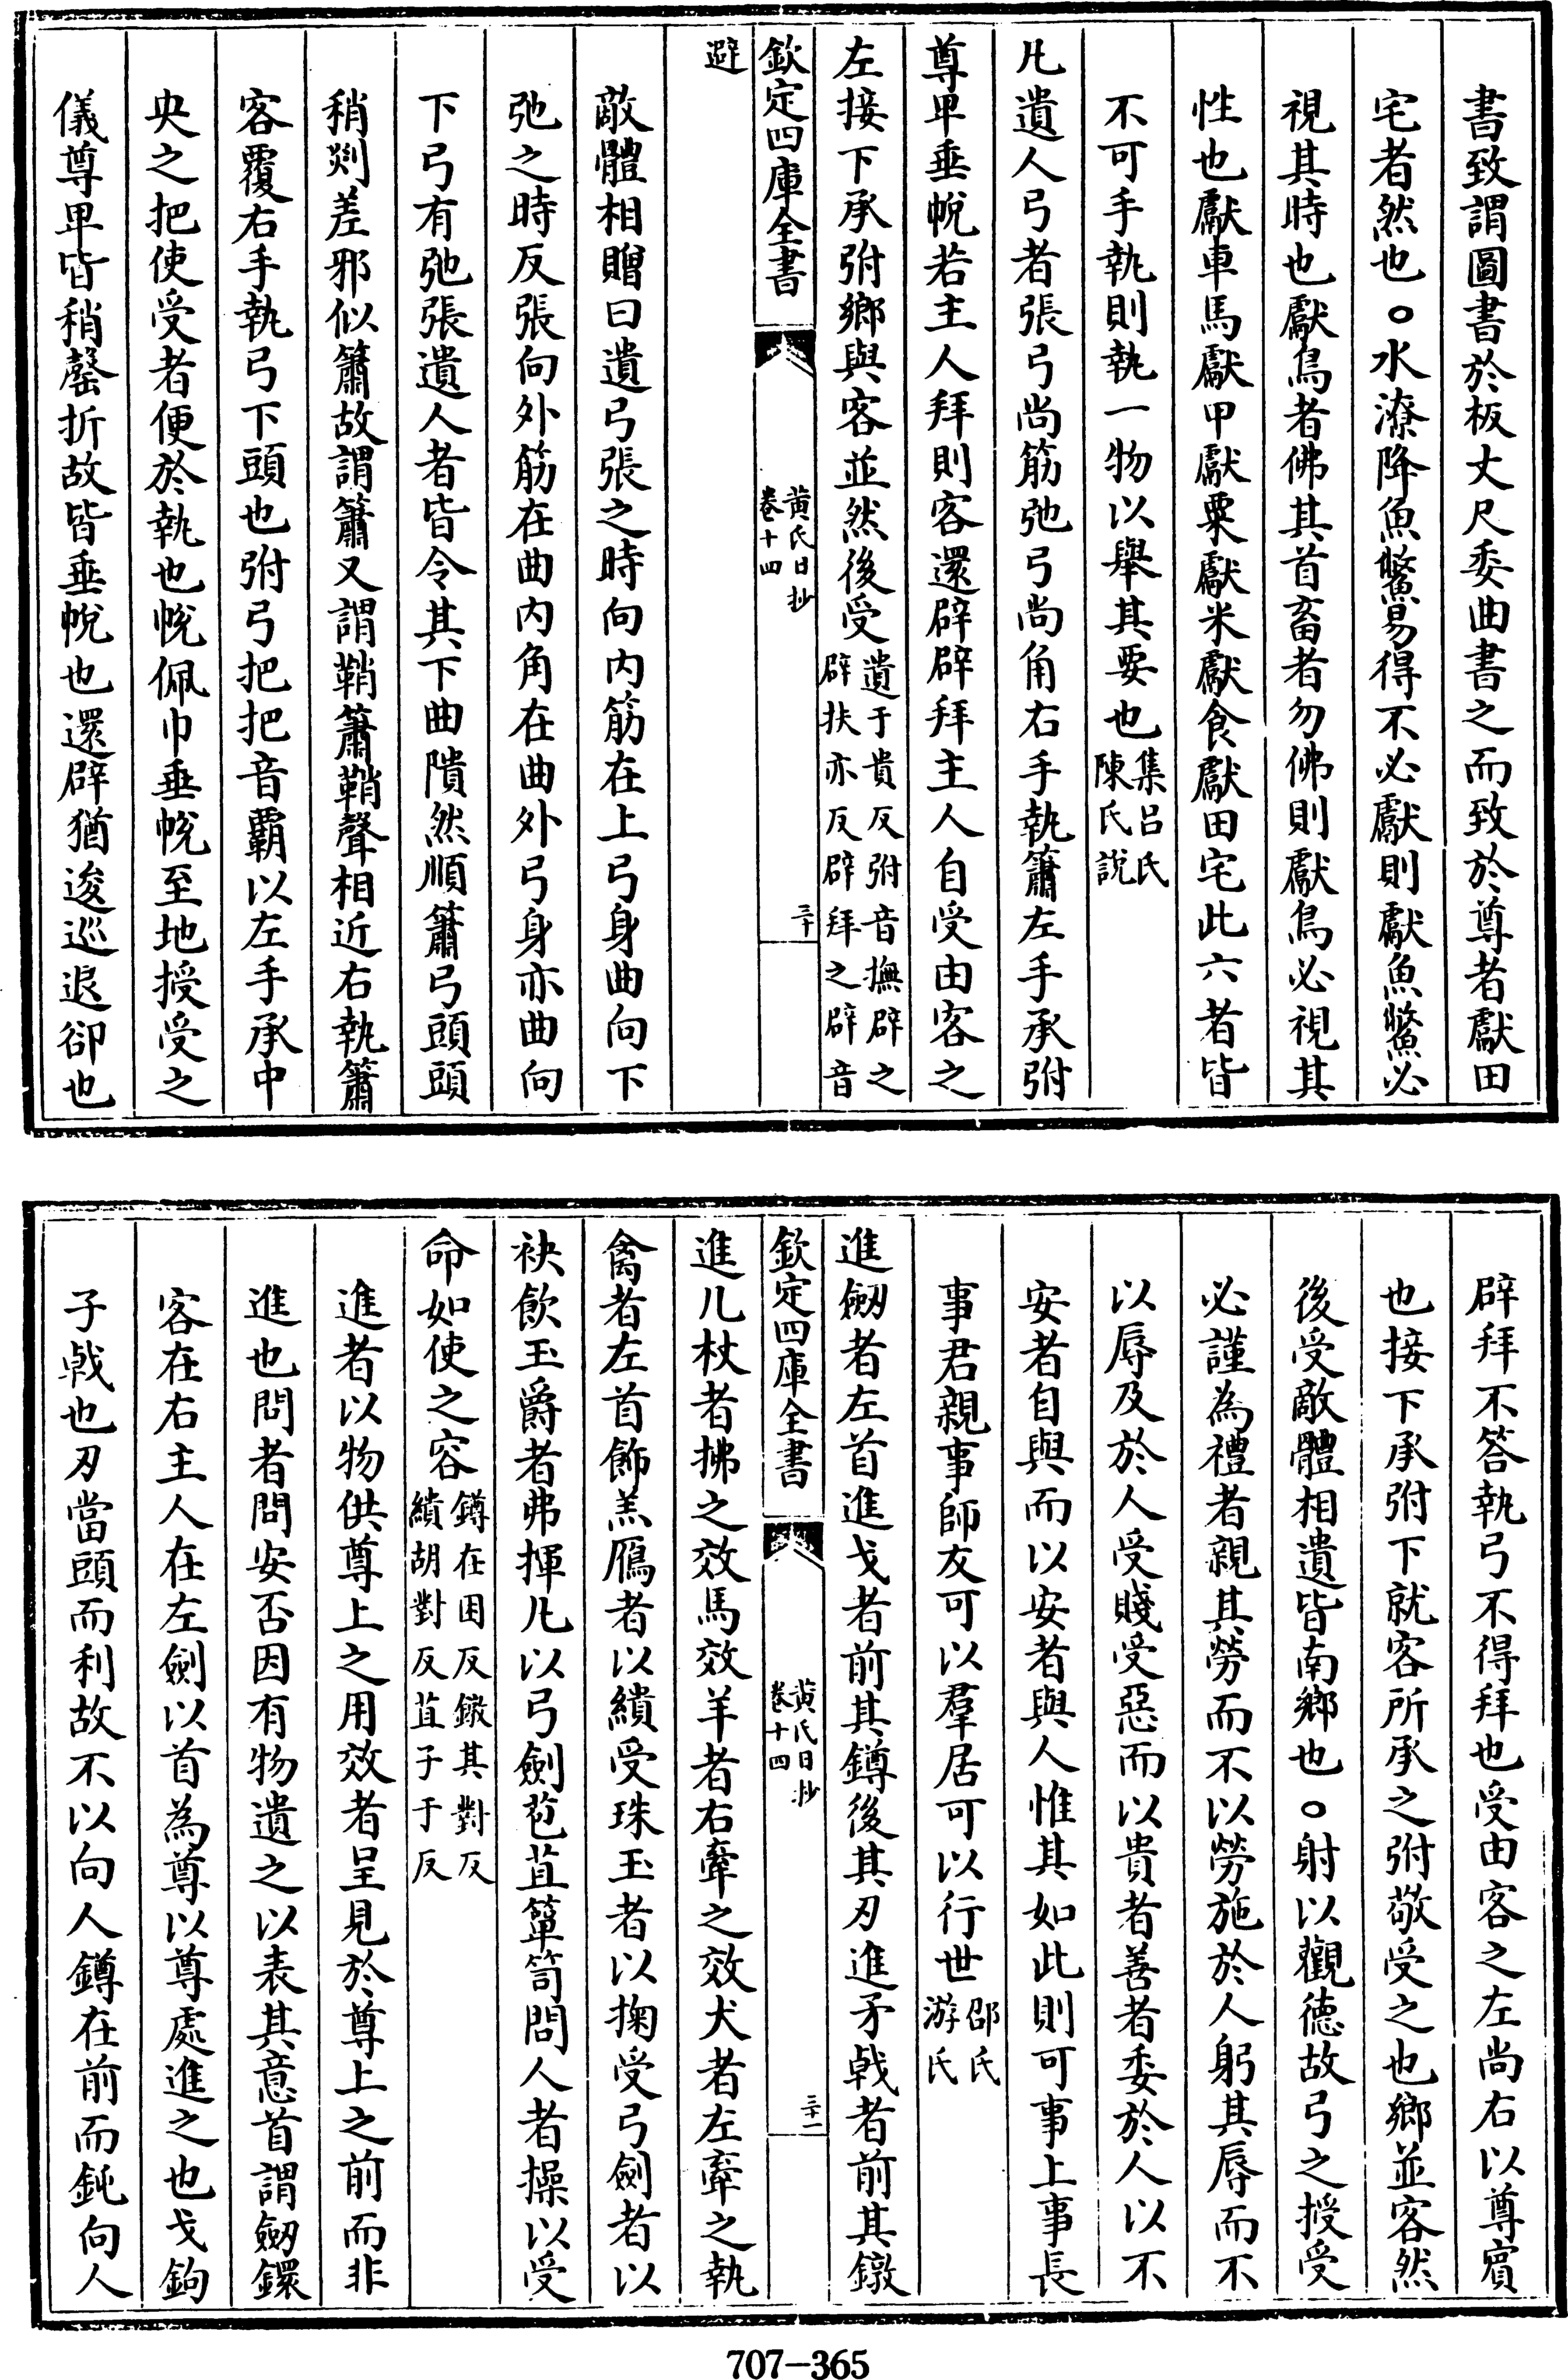 書致謂圖書於板丈尺委曲書之而致於尊者獻田
宅者然也○水潦降魚鱉易得不必獻則獻魚鱉必
視其時也獻鳥者佛其首畜者勿佛則獻鳥必視其
性也獻車馬獻甲獻粟獻米獻食獻田宅此六者皆
不可手執則執一物以舉其要也集呂氏陳氏說
凡遺人弓者張弓尚筋弛弓尚角右手執簫左手承弣
尊卑垂帨若主人拜則客還辟辟拜主人自受由客之
左接下承弣鄉與客並然後受遺于貴反弣音撫辟之辟扶亦反辟拜之辟音
欽定四庫全書 黃氏日抄卷十四 三十
避
敵體相贈曰遺弓張之時向内筋在上弓身曲向下
弛之時反張向外筋在曲内角在曲外弓身亦曲向
下弓有弛張遺人者皆令其下曲隤然順簫弓頭頭
稍剡差邪似簫故謂簫又謂鞘簫鞘聲相近右執簫
客覆右手執弓下頭也弣弓把把音霸以左手承中
央之把使受者便於執也帨佩巾垂帨至地授受之
儀尊卑皆稍磬折故皆垂帨也還辟猶逡巡退卻也
辟拜不答執弓不得拜也受由客之左尚右以尊賓
也接下承弣下就客所承之弣敬受之也鄉並客然
後受敵體相遺皆南鄉也○射以觀德故弓之授受
必謹為禮者親其勞而不以勞施於人躬其辱而不
以辱及於人受賤受惡而以貴者善者委於人以不
安者自與而以安者與人惟其如此則可事上事長
事君親事師友可以羣居可以行世邵氏游氏
進劒者左首進戈者前其鐏後其刃進矛戟者前其鐓
欽定四庫全書 黃氏日抄卷十四 三十一
進几杖者拂之效馬效羊者右牽之效犬者左牽之執
禽者左首飾羔鴈者以繢受珠玉者以掬受弓劍者以
袂飲玉爵者弗揮凡以弓劍苞苴簞笥問人者操以受
命如使之容鐏在困反鐓其對反繢胡對反苴子于反
進者以物供尊上之用效者呈見於尊上之前而非
進也問者問安否因有物遺之以表其意首謂劒鐶
客在右主人在左劍以首為尊以尊處進之也戈鉤
子戟也刃當頭而利故不以向人鐏在前而鈍向人
707-365